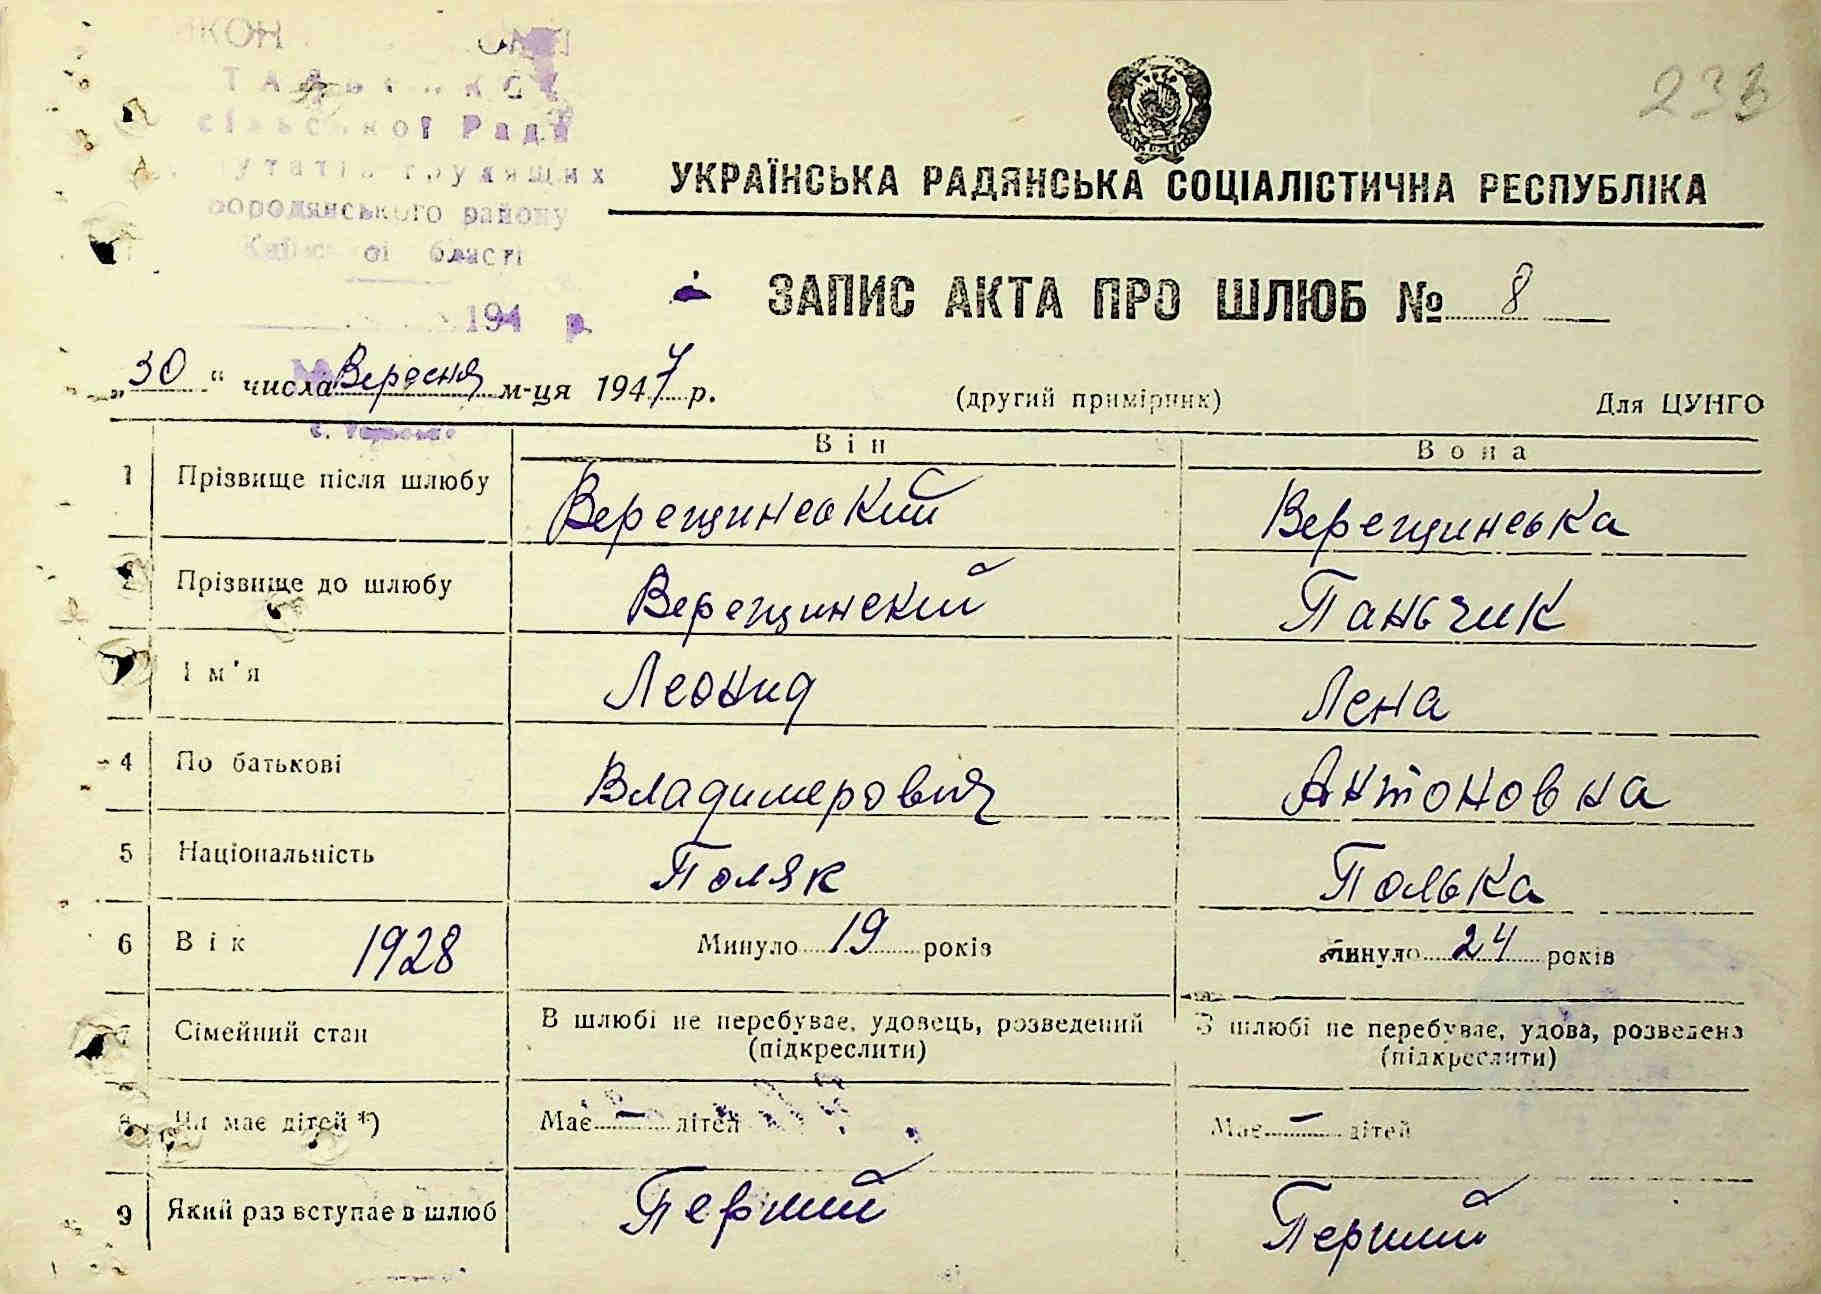 233
сільської Ради
депутатів трудящих
Бородянського району
Київської області
194 р.
УКРАЇНСЬКА РАДЯНСЬКА СОЦІАЛІСТИЧНА РЕСПУБЛІКА
ЗАПИС АКТА ПРО ШЛЮБ № 8
„30“ числа Вересня м-ця 1947 р.
(другий примірник)
Для ЦУНГО
Він Вона
1 Прізвище після шлюбу Верещинський Верещинська
2 Прізвище до шлюбу Верещинский Паньчик
Ім'я Леонид Лена
4 По батькові Владимерович Антоновна
5 Національність Поляк Полька
6 Вік 1928 Минуло 19 років Минуло 24 років
7 Сімейний стан В шлюбі не перебуває, удовець, розведений В шлюбі не перебуває, удова, розведена
(підкреслити) (підкреслити)
8 Чи має дітей *) Має — дітей Має — дітей
9 Який раз вступає в шлюб Перший Перший